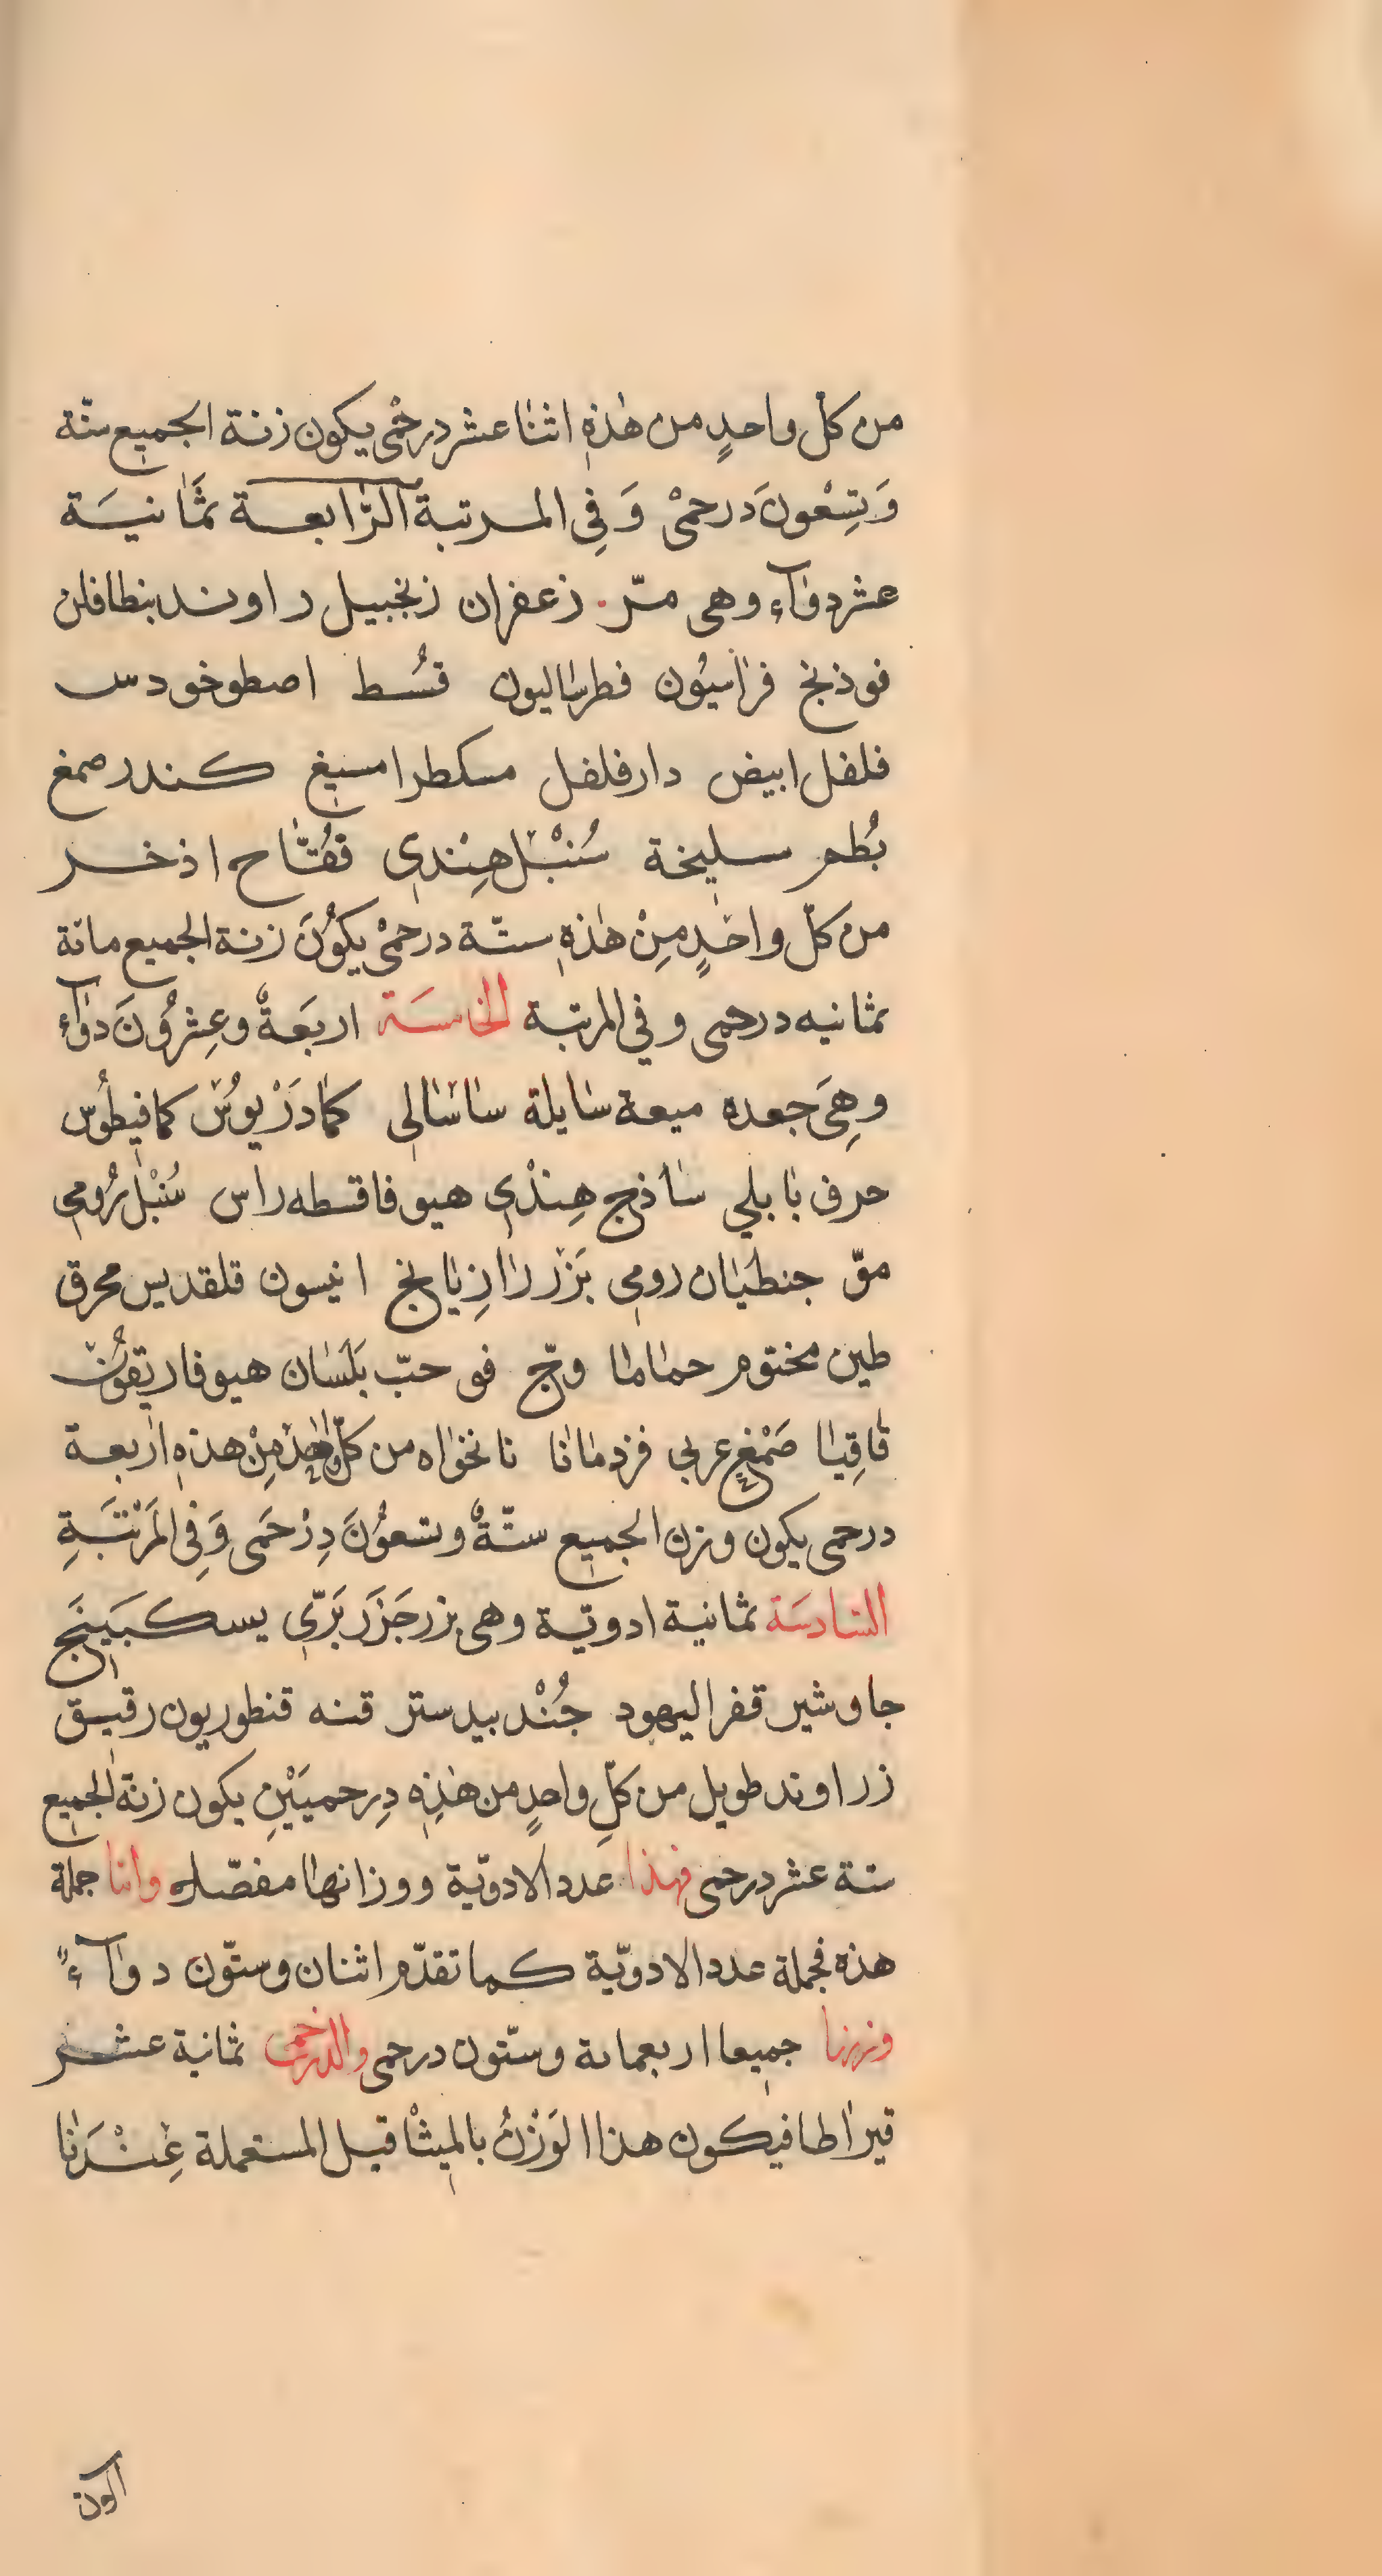 من كلّ واحدٍ من هٰذهِ اثنٰا عشر درخمْى يكون زنة الجميع ستّة
وَتِسْعونَ درحمىْ وَفِى المرتبة الرّابعة ثمَّانيَة
عشر دوآء وهى مرّ. زعفران زنجبيل راوند بنطافلن
فوذنج فرٰاسيُون فطرسٰاليون قسُط اصطوخودس
فلفل ابيض دارفلفل مسكطرامسيغ كندر صمغ
بُطم سليخة سُنْبُل هِنْدىِ فقُتّاح اذخر
من كلّ واحدٍ مِنْ هٰذهِ ستّة درحمىْ يكوُنَ زنة الجميع مائة
ثمانيه درحمى وفي المرتبة الخامسَة اربَعةٌ وعِشرُونَ دوآء
وهِىَ جعده ميعة سٰايلة ساسٰالى كمٰادَرْيوُسْ كمافيطُوس
حرف بٰابلي سٰاذج هِنْدىِ هيوفاقسطه راس سُنْبُل رُومىِ
موّ جنطيٰان رومى بَزْر رٰازِيٰانج انيسون قلقديس محرق
طين مختوم حمٰامٰا وجّ فو حبّ بَلَسٰان هيوفاريقوُن
قٰاقِيٰا صَمْغ عربى فزدمٰانٰا نانخوٰاه من كلّ واحد مِنْ هذهِ اربعة
درحمى يكون وزن الجميع ستّةٌ وتسعوُنَ دِرْحَمى وَفِى المَرْتَبَةِ
السّادسَة ثمانية ادوية وهى بزر جَزَر بَرّى يسكبَينَج
جاوشير قفر اليهود جُنْد بيدستر قنه قنطوريون رقيق
زراوند طويل من كلّ واحدٍ من هٰذِهِ دِرحميَيْنِ يكون زنة الجميع
ستة عشر درحمى فهذا عدد الادويّة ووزانهٰا مفصّله وامّا جملة
هذه فجملة عدد الادويّة كما تقدّم اثنان وستّون دوآءً
وزنها جميعا اربعمائة وستّون درحمى والدرخمى ثمانية عشر
قيرٰاطا فيكون هذا الوَزْنُ بالميثْاقيل المستعملة عِنْدَنٰا